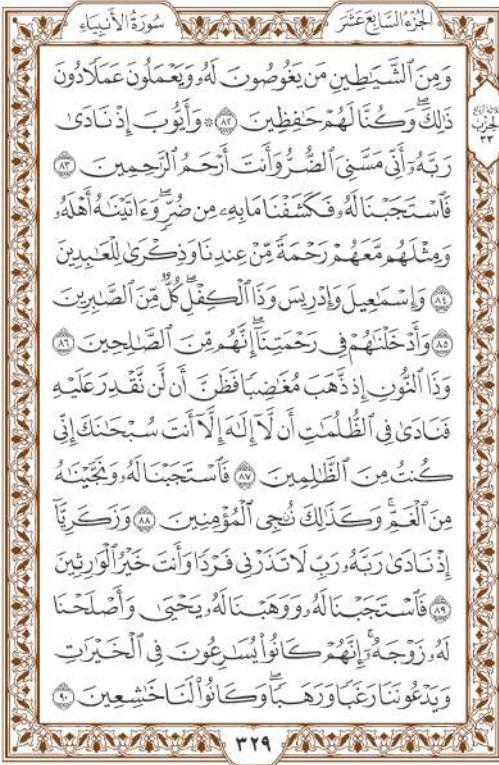 الجُزْءُ السَّابِعَ عَشَرَ سُورَةُ الأَنبِيَاءِ
وَمِنَ ٱلشَّيَـٰطِينِ مَن يَغُوصُونَ لَهُۥ وَيَعْمَلُونَ عَمَلًا دُونَ
ذَٰلِكَۖ وَكُنَّا لَهُمْ حَـٰفِظِينَ ٨٢ ۞ وَأَيُّوبَ إِذْ نَادَىٰ
رَبَّهُۥٓ أَنِّى مَسَّنِىَ ٱلضُّرُّ وَأَنتَ أَرْحَمُ ٱلرَّٰحِمِينَ ٨٣
فَٱسْتَجَبْنَا لَهُۥ فَكَشَفْنَا مَا بِهِۦ مِن ضُرٍّۖ وَءَاتَيْنَـٰهُ أَهْلَهُۥ
وَمِثْلَهُم مَّعَهُمْ رَحْمَةً مِّنْ عِندِنَا وَذِكْرَىٰ لِلْعَـٰبِدِينَ
٨٤ وَإِسْمَـٰعِيلَ وَإِدْرِيسَ وَذَا ٱلْكِفْلِۖ كُلٌّ مِّنَ ٱلصَّـٰبِرِينَ
٨٥ وَأَدْخَلْنَـٰهُمْ فِى رَحْمَتِنَآۖ إِنَّهُم مِّنَ ٱلصَّـٰلِحِينَ ٨٦
وَذَا ٱلنُّونِ إِذ ذَّهَبَ مُغَـٰضِبًا فَظَنَّ أَن لَّن نَّقْدِرَ عَلَيْهِ
فَنَادَىٰ فِى ٱلظُّلُمَـٰتِ أَن لَّآ إِلَـٰهَ إِلَّآ أَنتَ سُبْحَـٰنَكَ إِنِّى
كُنتُ مِنَ ٱلظَّـٰلِمِينَ ٨٧ فَٱسْتَجَبْنَا لَهُۥ وَنَجَّيْنَـٰهُ
مِنَ ٱلْغَمِّۚ وَكَذَٰلِكَ نُـۨجِى ٱلْمُؤْمِنِينَ ٨٨ وَزَكَرِيَّآ
إِذْ نَادَىٰ رَبَّهُۥ رَبِّ لَا تَذَرْنِى فَرْدًا وَأَنتَ خَيْرُ ٱلْوَٰرِثِينَ
٨٩ فَٱسْتَجَبْنَا لَهُۥ وَوَهَبْنَا لَهُۥ يَحْيَىٰ وَأَصْلَحْنَا
لَهُۥ زَوْجَهُۥٓۚ إِنَّهُمْ كَانُوا۟ يُسَـٰرِعُونَ فِى ٱلْخَيْرَٰتِ
وَيَدْعُونَنَا رَغَبًا وَرَهَبًاۖ وَكَانُوا۟ لَنَا خَـٰشِعِينَ ٩٠
الحِزْب
٣٣
٣٢٩